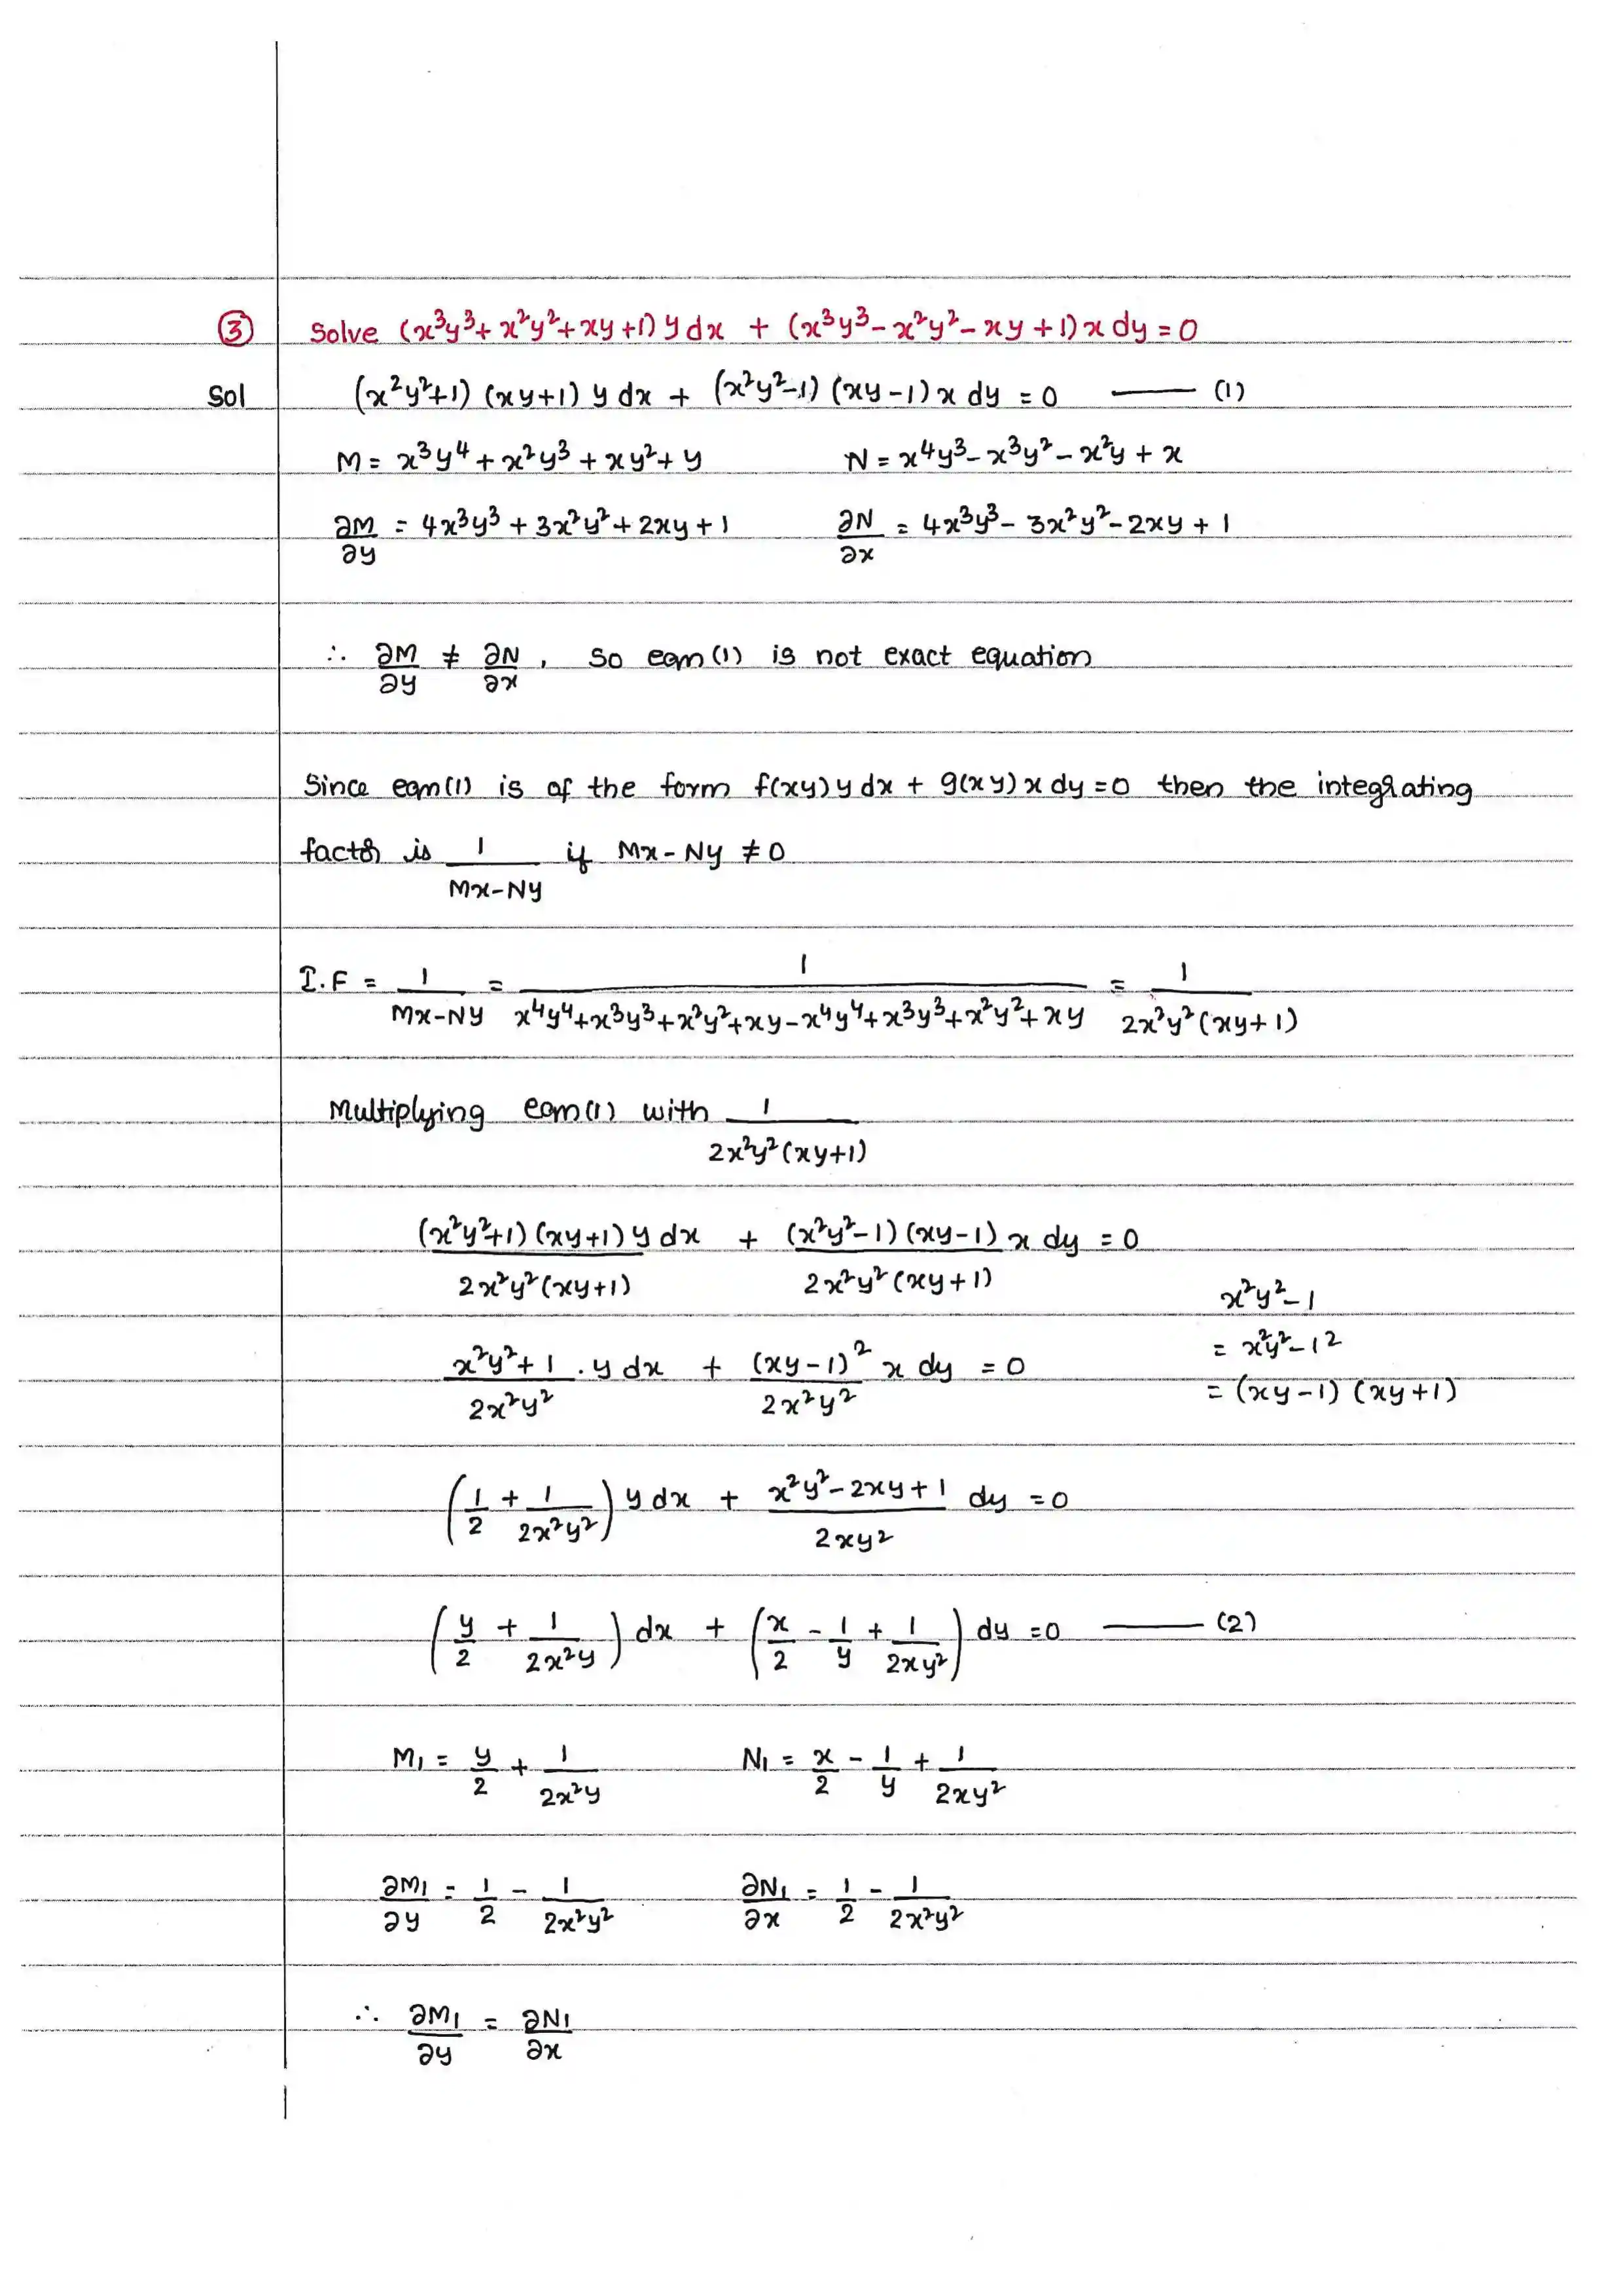 ③ Solve (x³y³+x²y²+xy+1) y dx + (x³y³-x²y²-xy+1) x dy = 0
Sol (x²y²+1) (xy+1) y dx + (x²y²-1) (xy-1) x dy = 0 —— (1)
M = x³y⁴+x²y³+xy²+y N = x⁴y³-x³y²-x²y+x
∂M/∂y = 4x³y³+3x²y²+2xy+1 ∂N/∂x = 4x³y³-3x²y²-2xy+1
∴ ∂M/∂y ≠ ∂N/∂x , So eqn (1) is not exact equation
Since eqn(1) is of the form f(xy) y dx + g(xy) x dy = 0 then the integrating
factor is 1/(Mx-Ny) if Mx-Ny ≠ 0
I.F = 1/(Mx-Ny) = 1/(x⁴y⁴+x³y³+x²y²+xy-x⁴y⁴+x³y³+x²y²+xy) = 1/(2x²y²(xy+1))
Multiplying eqn(1) with 1/(2x²y²(xy+1))
(x²y²+1)(xy+1) y dx/(2x²y²(xy+1)) + (x²y²-1)(xy-1)/(2x²y²(xy+1)) x dy = 0
x²y²-1
= x²y²-1²
= (xy-1) (xy+1)
(x²y²+1)/(2x²y²) . y dx + (xy-1)²/(2x²y²) x dy = 0
(1/2 + 1/(2x²y²)) y dx + (x²y²-2xy+1)/(2xy²) dy = 0
(y/2 + 1/(2x²y)) dx + (x/2 - 1/y + 1/(2xy²)) dy = 0 —— (2)
M₁ = y/2 + 1/(2x²y) N₁ = x/2 - 1/y + 1/(2xy²)
∂M₁/∂y = 1/2 - 1/(2x²y²) ∂N₁/∂x = 1/2 - 1/(2x²y²)
∴ ∂M₁/∂y = ∂N₁/∂x